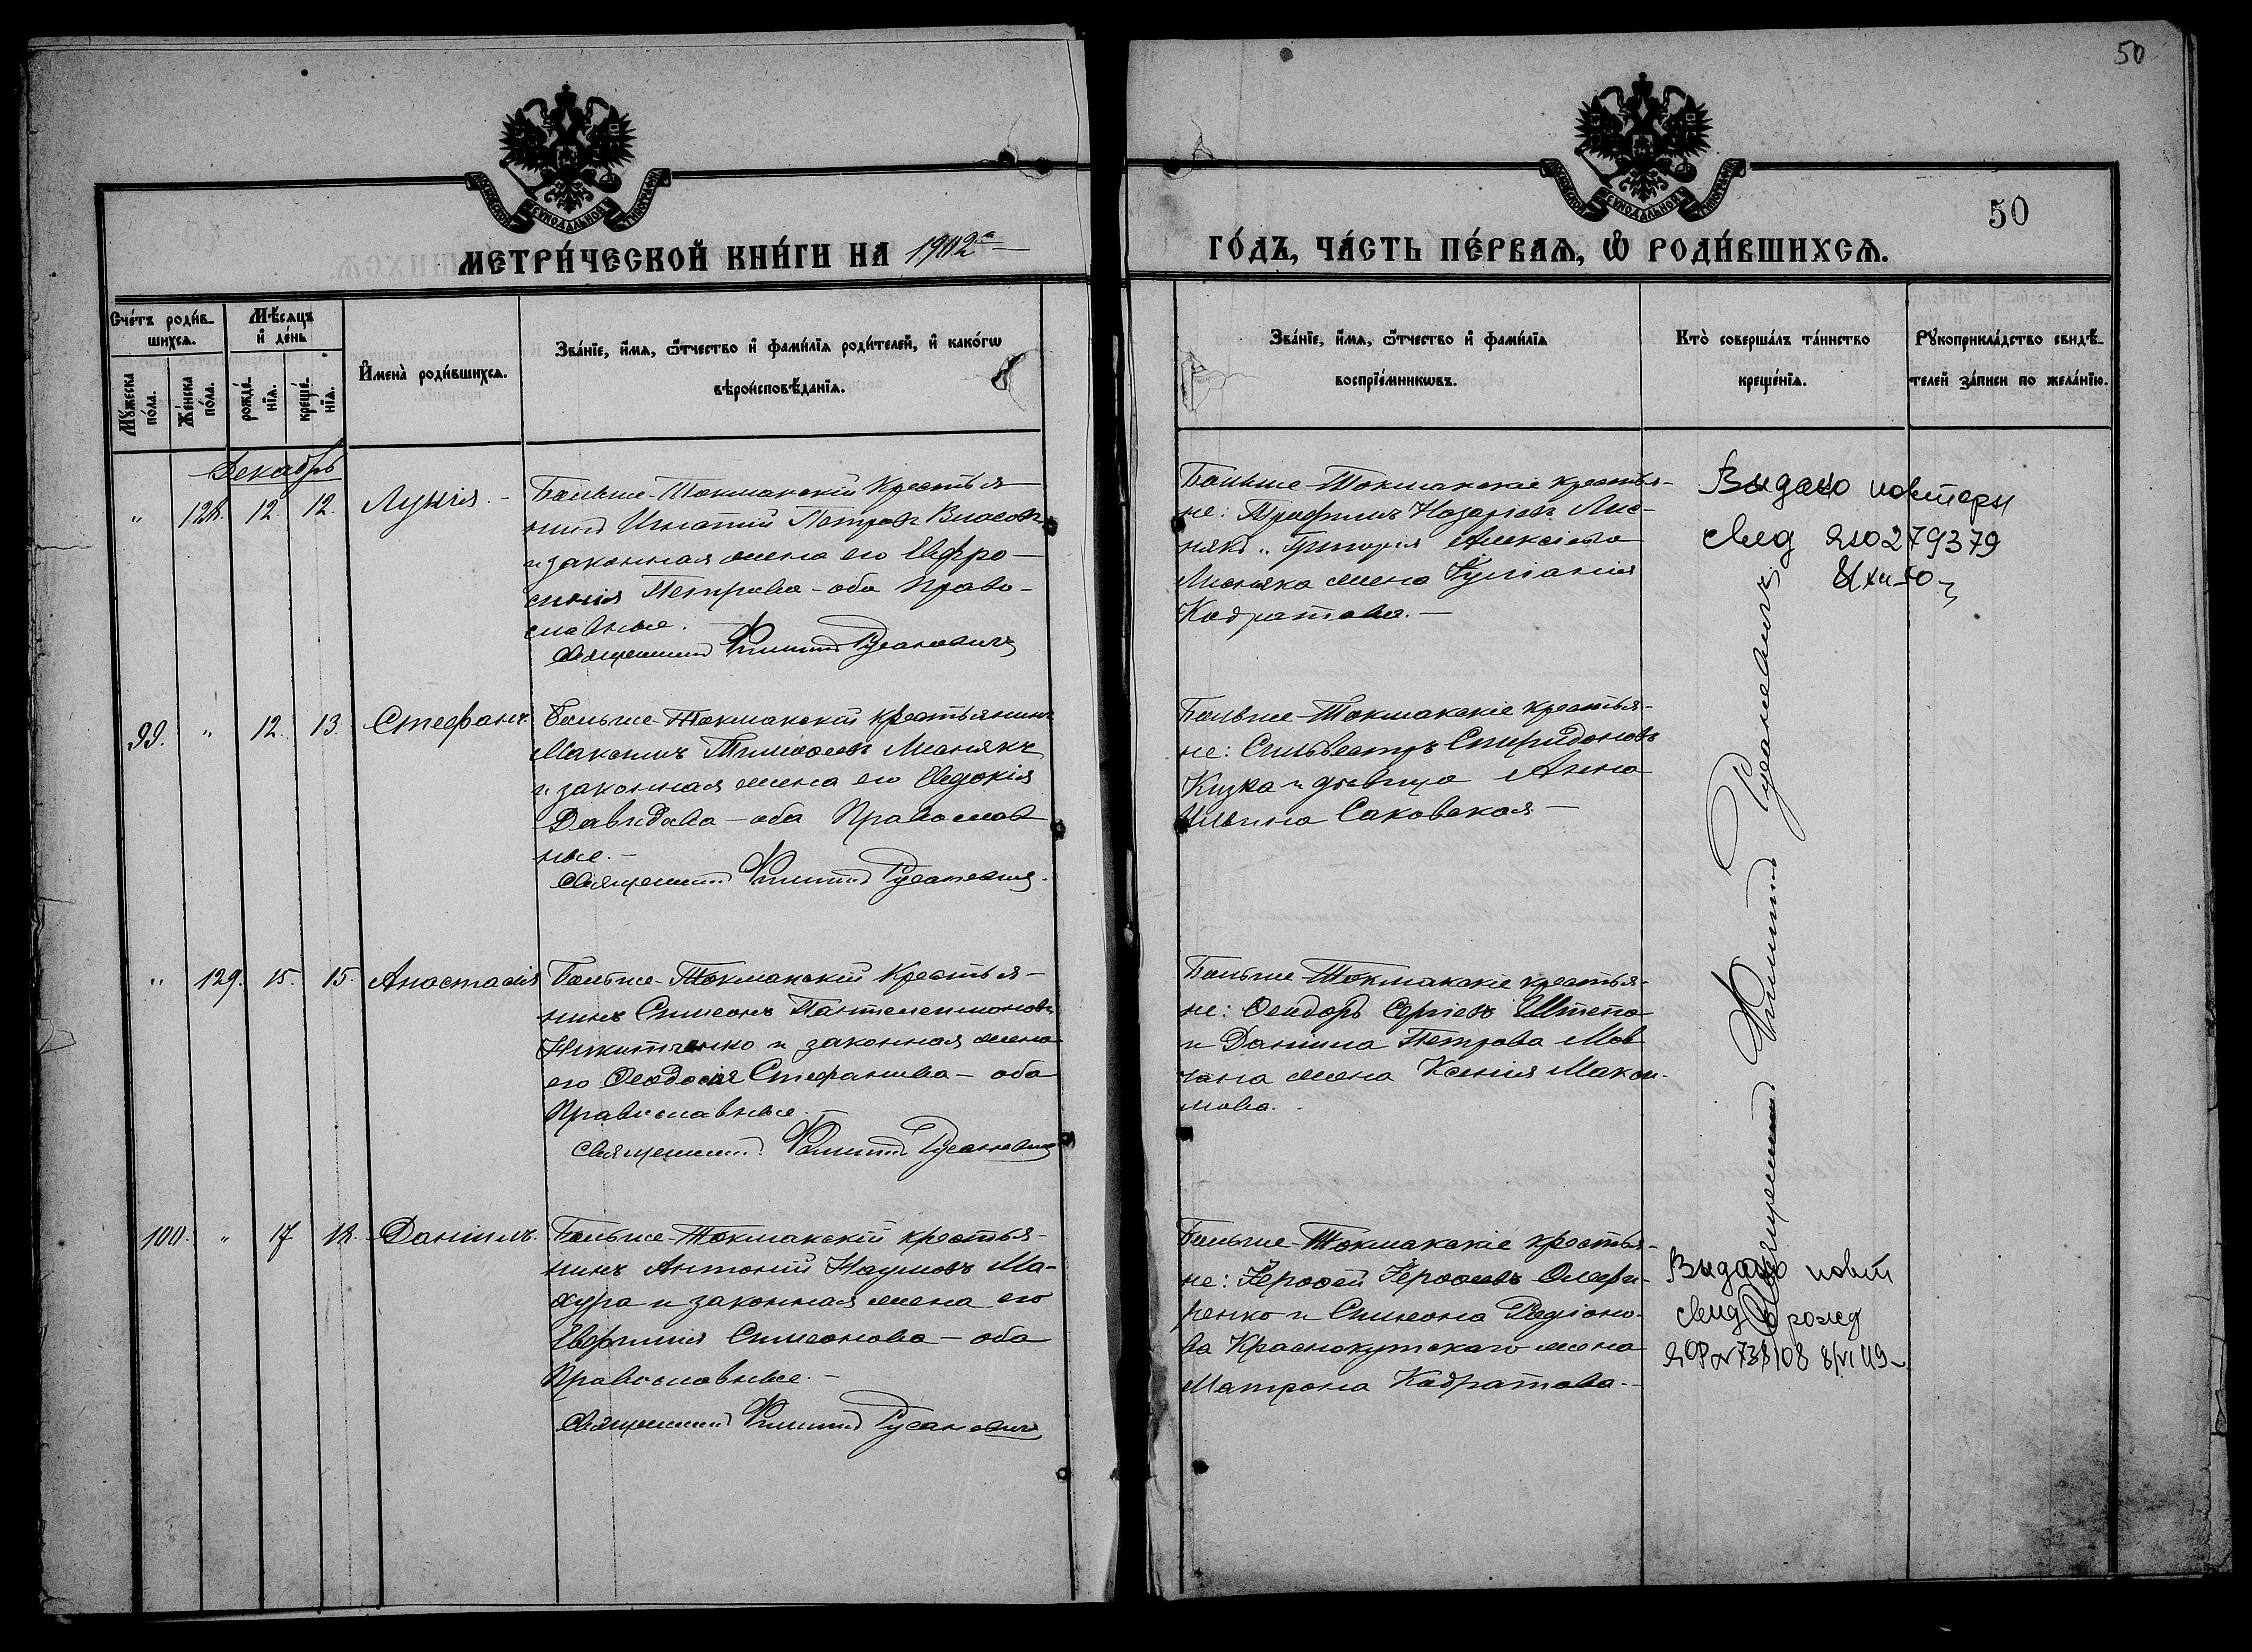 50
50
МЕТРИ́ЧЕСКОЙ КНИ́ГИ НА 1902й
ГО́ДЪ, ЧА́СТЬ ПЕ́РВАѦ, Ѡ РОДИ́ВШИХСѦ.
Сче́тъ роди́в-
шихсѧ.
Мѣ́сѧцъ
и҆ де́нь
И҆мена̀ роди́вшихсѧ.
Зва́нїе, и҆́мѧ, ѻ҆́тчество и҆ фами́лїѧ роди́телей, и҆ како́гѡ
вѣроисповѣ́данїѧ.
Мꙋ́жеска
по́ла.
Же́нска
по́ла.
рожде́-
нїѧ.
креще́-
нїѧ.
Зва́нїе, и҆́мѧ, ѻ҆́тчество и҆ фами́лїѧ
воспрїе́мникѡвъ.
Кто̀ соверша́лъ та́инство
креще́нїѧ.
Рꙋкоприкла́дство свидѣ́-
телей за́писи по жела́нїю.
Декабрь
" 128. 12. 12. Лукія.
Больше-Токмакскій крестья-
нинъ Игнатій Петровъ Власовъ
и законная жена его Евфро-
синія Петрова - оба право-
славные.
Священникъ Филиппъ Русановичъ
Больше-Токмакскіе крестья-
не: Трофимъ Назаріевъ Лис-
някъ и Григорія Алексіева
Лисняка жена Іуліанія
Кодратова.
Видано повторн
свид
99. " 12. 13. Стефанъ.
Больше-Токмакскій крестьянинъ
Максимъ Тимофеевъ Лиснякъ
и законная жена его Евдокія
Давидова - оба Православ
ные.
Священникъ Филиппъ Русановичъ.
Больше-Токмакскіе крестья-
не: Сильвестръ Спиридоновъ
Кизка и дѣвица Анна
Ильина Саковская
" 129. 15. 15. Анастасія
Больше-Токмакскій крестья-
нинъ Симеонъ Пантелеимоновъ
Никитченко и законная жена
его Феодосія Стефанова - оба
Православные.
Священникъ Филиппъ Русановичъ
Больше-Токмакскіе крестья-
не: Феодоръ Сергіевъ Штепа
и Даніила Петрова Мов
чана жена Ксенія Макси-
мова.
100. " 17 18. Даніилъ.
Больше-Токмакскій крестья-
нинъ Антоній Наумовъ Ма-
хура и законная жена его
Евфимія Симеонова - оба
Православные.
Священникъ Филиппъ Русановичъ
Больше-Токмакскіе крестья-
не: Іерофей Іерофеевъ Олефи-
ренко и Симеона Родіоно-
ва Краснокутскаго жена
Матрона Кодратова.
Видано повт
свид о рожд
Священникъ Филиппъ Русановичъ